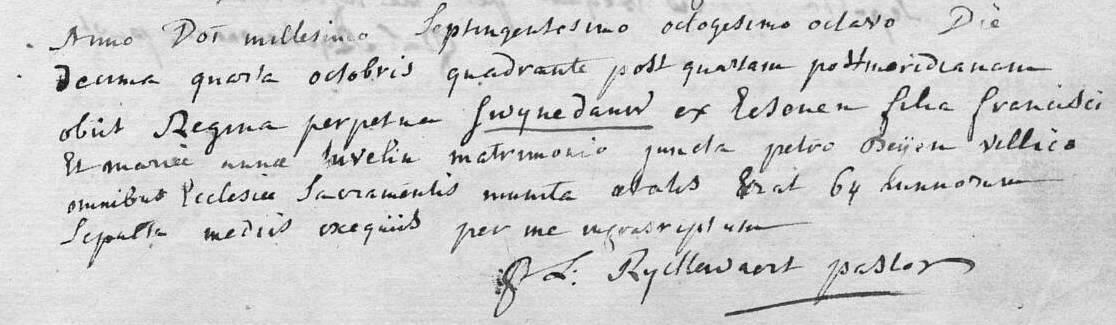 Anno Doi millesimo Septingentesimo octogesimo octavo Die
Decima quarta octobris quadrante post quartam postmeridianam
obiit Regina perpetua Swynedauw ex Eesonen filia francisci
Et mariæ annæ matrimonio juncta petro villico
omnibus Ecclesiæ Sacramentis munita ætatis Erat 64 annorum
Sepulta mediis exequiis per me infrascriptum
L: Ryckewaert pastor